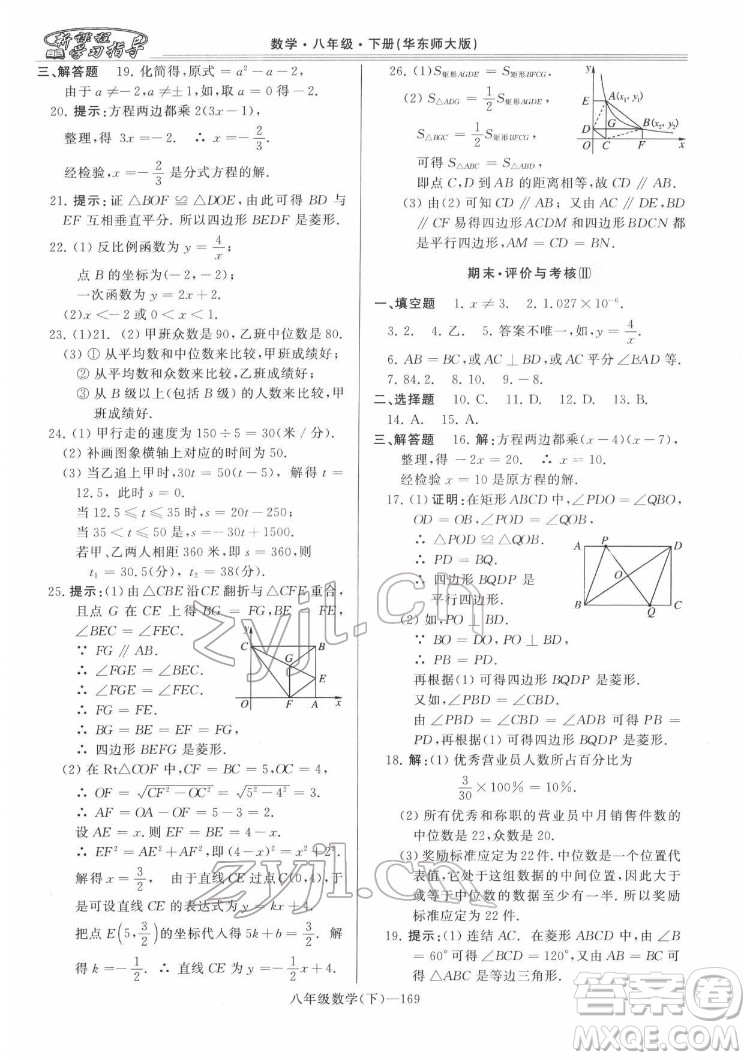 新课程
学习指导
数学·八年级·下册(华东师大版)
三、解答题 19. 化简得，原式＝a²－a－2，
由于 a≠－2，a≠±1，如，取 a＝0 得－2.
20. 提示：方程两边都乘 2(3x－1)，
整理，得－3x＝2. ∴ x＝－2/3.
经检验，x＝－2/3是分式方程的解.
21. 提示：证△BOF≌△DOE，由此可得 BD 与
EF 互相垂直平分. 所以四边形 BEDF 是菱形.
22. (1) 反比例函数为 y＝4/x；
点 B 的坐标为(－2，－2)，
一次函数为 y＝2x＋2.
(2)x＜－2 或 0＜x＜1.
23. (1)21. (2) 甲班众数是 90，乙班中位数是 80.
(3) ① 从平均数和中位数来比较，甲班成绩好.
② 从平均数和众数来比较，乙班成绩好.
③ 从 B 级以上(包括 B 级)的人数来比较，甲
班成绩好.
24. (1) 甲行走的速度为 150÷5＝30(米/分).
(2) 补画图象横轴上对应的时间为 50.
(3) 当乙追上甲时，35t－30t(50－t)，解得 t＝
12.5，此时 s＝0.
当 12.5≤t≤35 时，s＝
当 35＜t≤50 时，s＝－30t＋1500.
若甲、乙两人相距 360 米，即 s＝360，则
t₁＝30.5(分)，t₂＝38(分).
25. 提示：(1) 由△CBE 沿 CE 翻折与△CFE 重合，
且点 G 在 CE 上得 BG＝FG，BE＝FE，
∠BEC＝∠FEC.
∵ FG∥AB，
∴ ∠FGE＝∠BEC.
∴ ∠FGE＝∠FEC.
∴ FG＝FE.
∴ BG＝BE＝EF＝FG.
∴ 四边形 BEFG 是菱形.
y
C
B
G
E
O
F
A
x
(2) 在 Rt△COF 中，CF＝BC＝5，OC＝4，
∴ OF＝√(CF²－OC²)＝√(5²－4²)＝3.
∴ AF＝OA－OF＝5－3＝2.
设 AE＝x，则 EF＝BE＝4－x.
∴ EF²＝AE²＋AF²，即(4－x)²＝x²＋2².
解得 x＝3/2， 由于直线 CE 过点 C(0，4)，于
是可设直线 CE 的表达式为 y＝kx＋4，
把点 E(5，3/2)的坐标代入得 5k＋b＝3/2. 解
得 k＝－1/2. ∴ 直线 CE 为 y＝－1/2x＋4.
26. (1)S矩形AGDE＝S矩形BFCG.
(2) S△ADG＝1/2 S矩形AGDE，
S△BGC＝1/2 S矩形BFCG.
可得 S△ABC＝S△ABD.
y
E
A(x₁, y₁)
D
G
B(x₂, y₂)
O
C
F
x
即点 C，D 到 AB 的距离相等. ∴ CD∥AB.
(3) 由(2) 可知 CD∥AB；又由 AM∥CD，BD
∥CF 易得四边形 ACDM 和四边形 BDCN 都
是平行四边形，AM＝CD＝BN.
期末·评价与考核(Ⅱ)
一、填空题 1. x≠3. 2. 1.027×10⁻⁶.
3. 2. 4. 乙. 5. 答案不唯一，如，y＝4/x.
6. AB＝BC，或 AC⊥BD，或 AC 平分∠BAD 等.
7. 84. 2. 8. 10. 9. －8.
二、选择题 10. C. 11. D. 12. D. 13. B.
14. A. 15. A.
三、解答题 16. 解：方程两边都乘(x－4)(x－7)，
得－2x＝20. ∴ x＝10.
经检验 x＝10 是原方程的解.
17. (1) 证明：在矩形 ABCD 中，∠PDO＝∠QBO，
OD＝OB，∠POD＝∠QOB，
∴ △POD≌△QOB.
∴ PD＝BQ.
∴ 四边形 BQDP 是
平行四边形.
A
P
D
O
B
Q
C
(2) 如，PB＝PD.
∵ PB＝PD，
∴ ∠PBD＝∠PDB.
再根据(1) 可知四边形 BQDP 是菱形.
又如，∠PBD＝∠CBD.
由∠PBD＝∠CBD＝∠ADB 可得 PB＝
PD，再根据(1) 可知四边形 BQDP 是菱形.
18. 解：(1) 优秀营业员人数所占百分比为
3/30×100%＝10%.
(2) 所有优秀和称职的营业员中月销售件数的
中位数是 22，众数是 20.
(3) 奖励标准应定为 22 件. 中位数是一个位置代
表值，它处于这组数据的中间位置，因此大于
或等于中位数的数据至少有一半. 所以奖励
标准应定为 22 件.
19. 提示：(1) 连结 AC. 在菱形 ABCD 中，由∠B
＝60°可得∠BCD＝120°，又由 AB＝BC，可
得△ABC 是等边三角形.
八年级数学(下)—169
zyjl.cn
zyjl.cn
答案圈
MXQE.COM